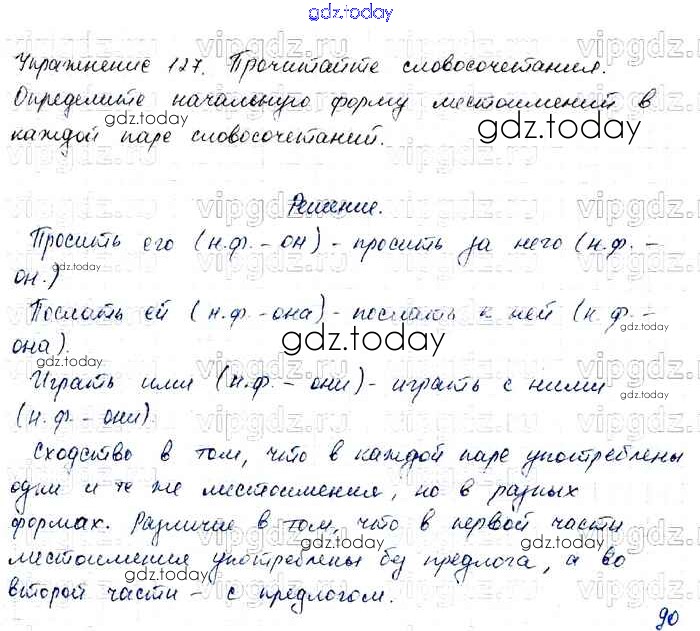 gdz.today
Упражнение 127. Прочитайте словосочетания.
Определите начальную форму местоимений в
каждой паре словосочетаний.
Решение.
Просить его (н.ф. - он) - просить за него (н.ф. -
он.)
Послать ей (н.ф. - она) - послать к ней (н.ф. -
она).
Играть ими (н.ф. - они) - играть с ними
(н.ф. - они)
Сходство в том, что в каждой паре употреблены
одни и те же местоимения, но в разных
формах. Различие в том, что в первой части
местоимения употреблены без предлога, а во
второй части - с предлогом.
90